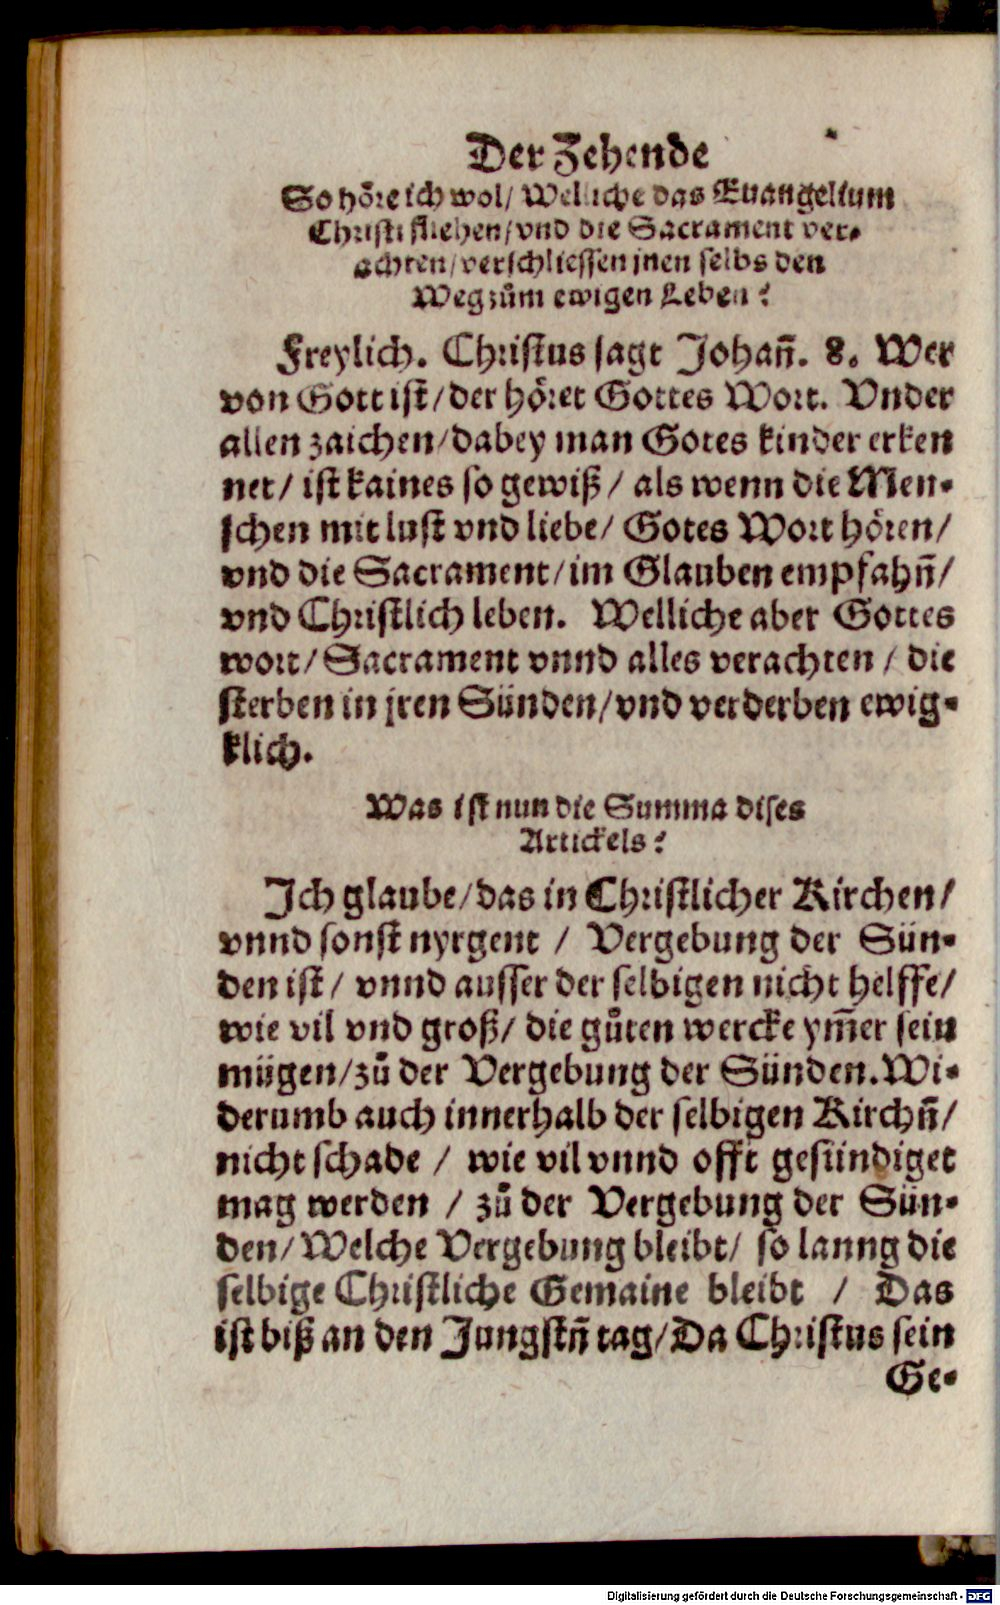 Der Zehende
So hoͤre ich wol/ Welliche das Euangelium
Christi fliehen/ vnd die Sacrament ver-
achten/ verschliessen jnen selbs den
Weg zuͦm ewigen Leben?
Freylich. Christus sagt Johañ. 8. Wer
von Gott ist/ der hoͤret Gottes Wort. Vnder
allen zaichen/ dabey man Gotes kinder erken
net/ ist kaines so gewiß/ als wenn die Men-
schen mit lust vnd liebe/ Gotes Wort hoͤren/
vnd die Sacrament/ im Glauben empfahn̄/
vnd Christlich leben. Welliche aber Gottes
wort/ Sacrament vnnd alles verachten/ die
sterben in jren Sünden/ vnd verderben ewig-
klich.
Was ist nun die Summa dises
Artickels?
Ich glaube/ das in Christlicher Kirchen/
vnnd sonst nyrgent/ Vergebung der Sün-
den ist/ vnnd ausser der selbigen nicht helffe/
wie vil vnd groß/ die guͦten wercke ym̄er sein
mügen/ zuͦ der Vergebung der Sünden. Wi-
derumb auch innerhalb der selbigen Kirchn̄/
nicht schade/ wie vil vnnd offt gesündiget
mag werden/ zuͦ der Vergebung der Sün-
den/ Welche Vergebung bleibt/ so lanng die
selbige Christliche Gemaine bleibt/ Das
ist biß an den Jungstn̄ tag/ Da Christus sein
Ge-
Digitalisierung gefördert durch die Deutsche Forschungsgemeinschaft - DFG